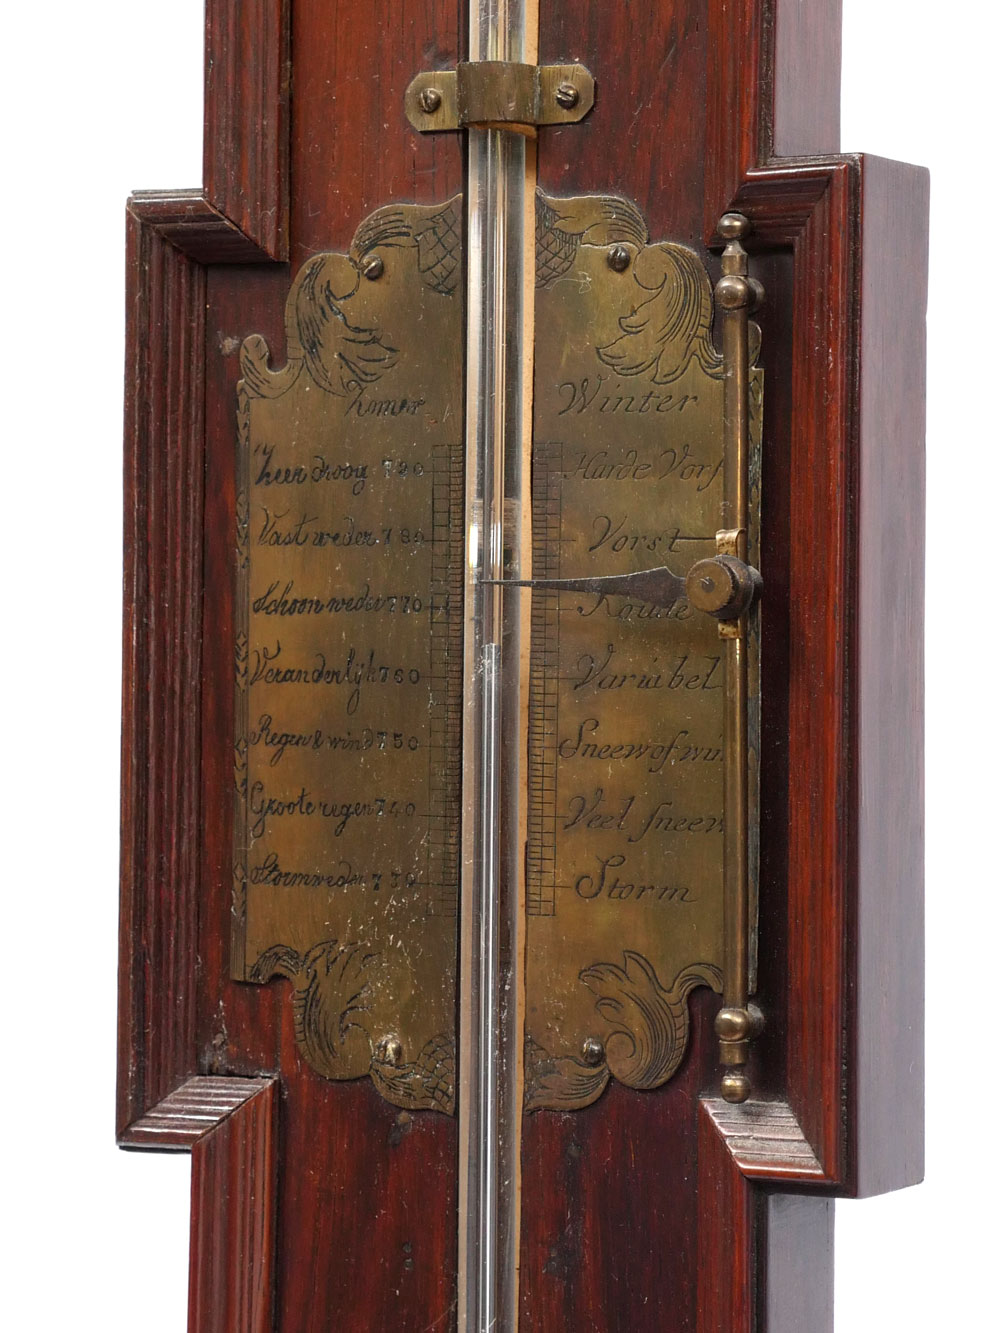 Zomer Winter
Zeer droog 790 Harde Vors
Vast weder 780 Vorst
Schoon weder 770 Koude
Veranderlijk 760 Variabel
Regen & wind 750 Sneew of win
Groote regen 740 Veel sneew
Stormweder 730 Storm